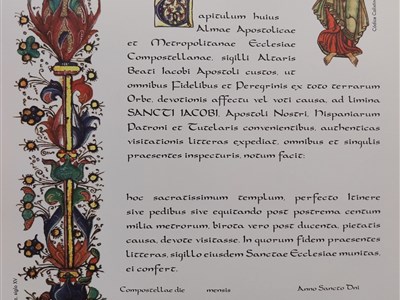 Capitulum huius
Almae Apostolicae
et Metropolitanae Ecclesiae
Compostellanae, sigilli Altaris
Beati Iacobi Apostoli custos, ut
omnibus Fidelibus et Peregrinis ex toto terrarum
Orbe, devotionis affectu vel voti causa, ad limina
SANCTI IACOBI, Apostoli Nostri, Hispaniarum
Patroni et Tutelaris convenientibus, authenticas
visitationis litteras expediat, omnibus et singulis
praesentes inspecturis, notum facit:
hoc sacratissimum templum, perfecto Itinere
sive pedibus sive equitando post postrema centum
milia metrorum, birota vero post ducenta, pietatis
causa, devote visitasse. In quorum fidem praesentes
litteras, sigillo eiusdem Sanctae Ecclesiae munitas,
ei confert.
Compostellae die mensis Anno Sancto Dni